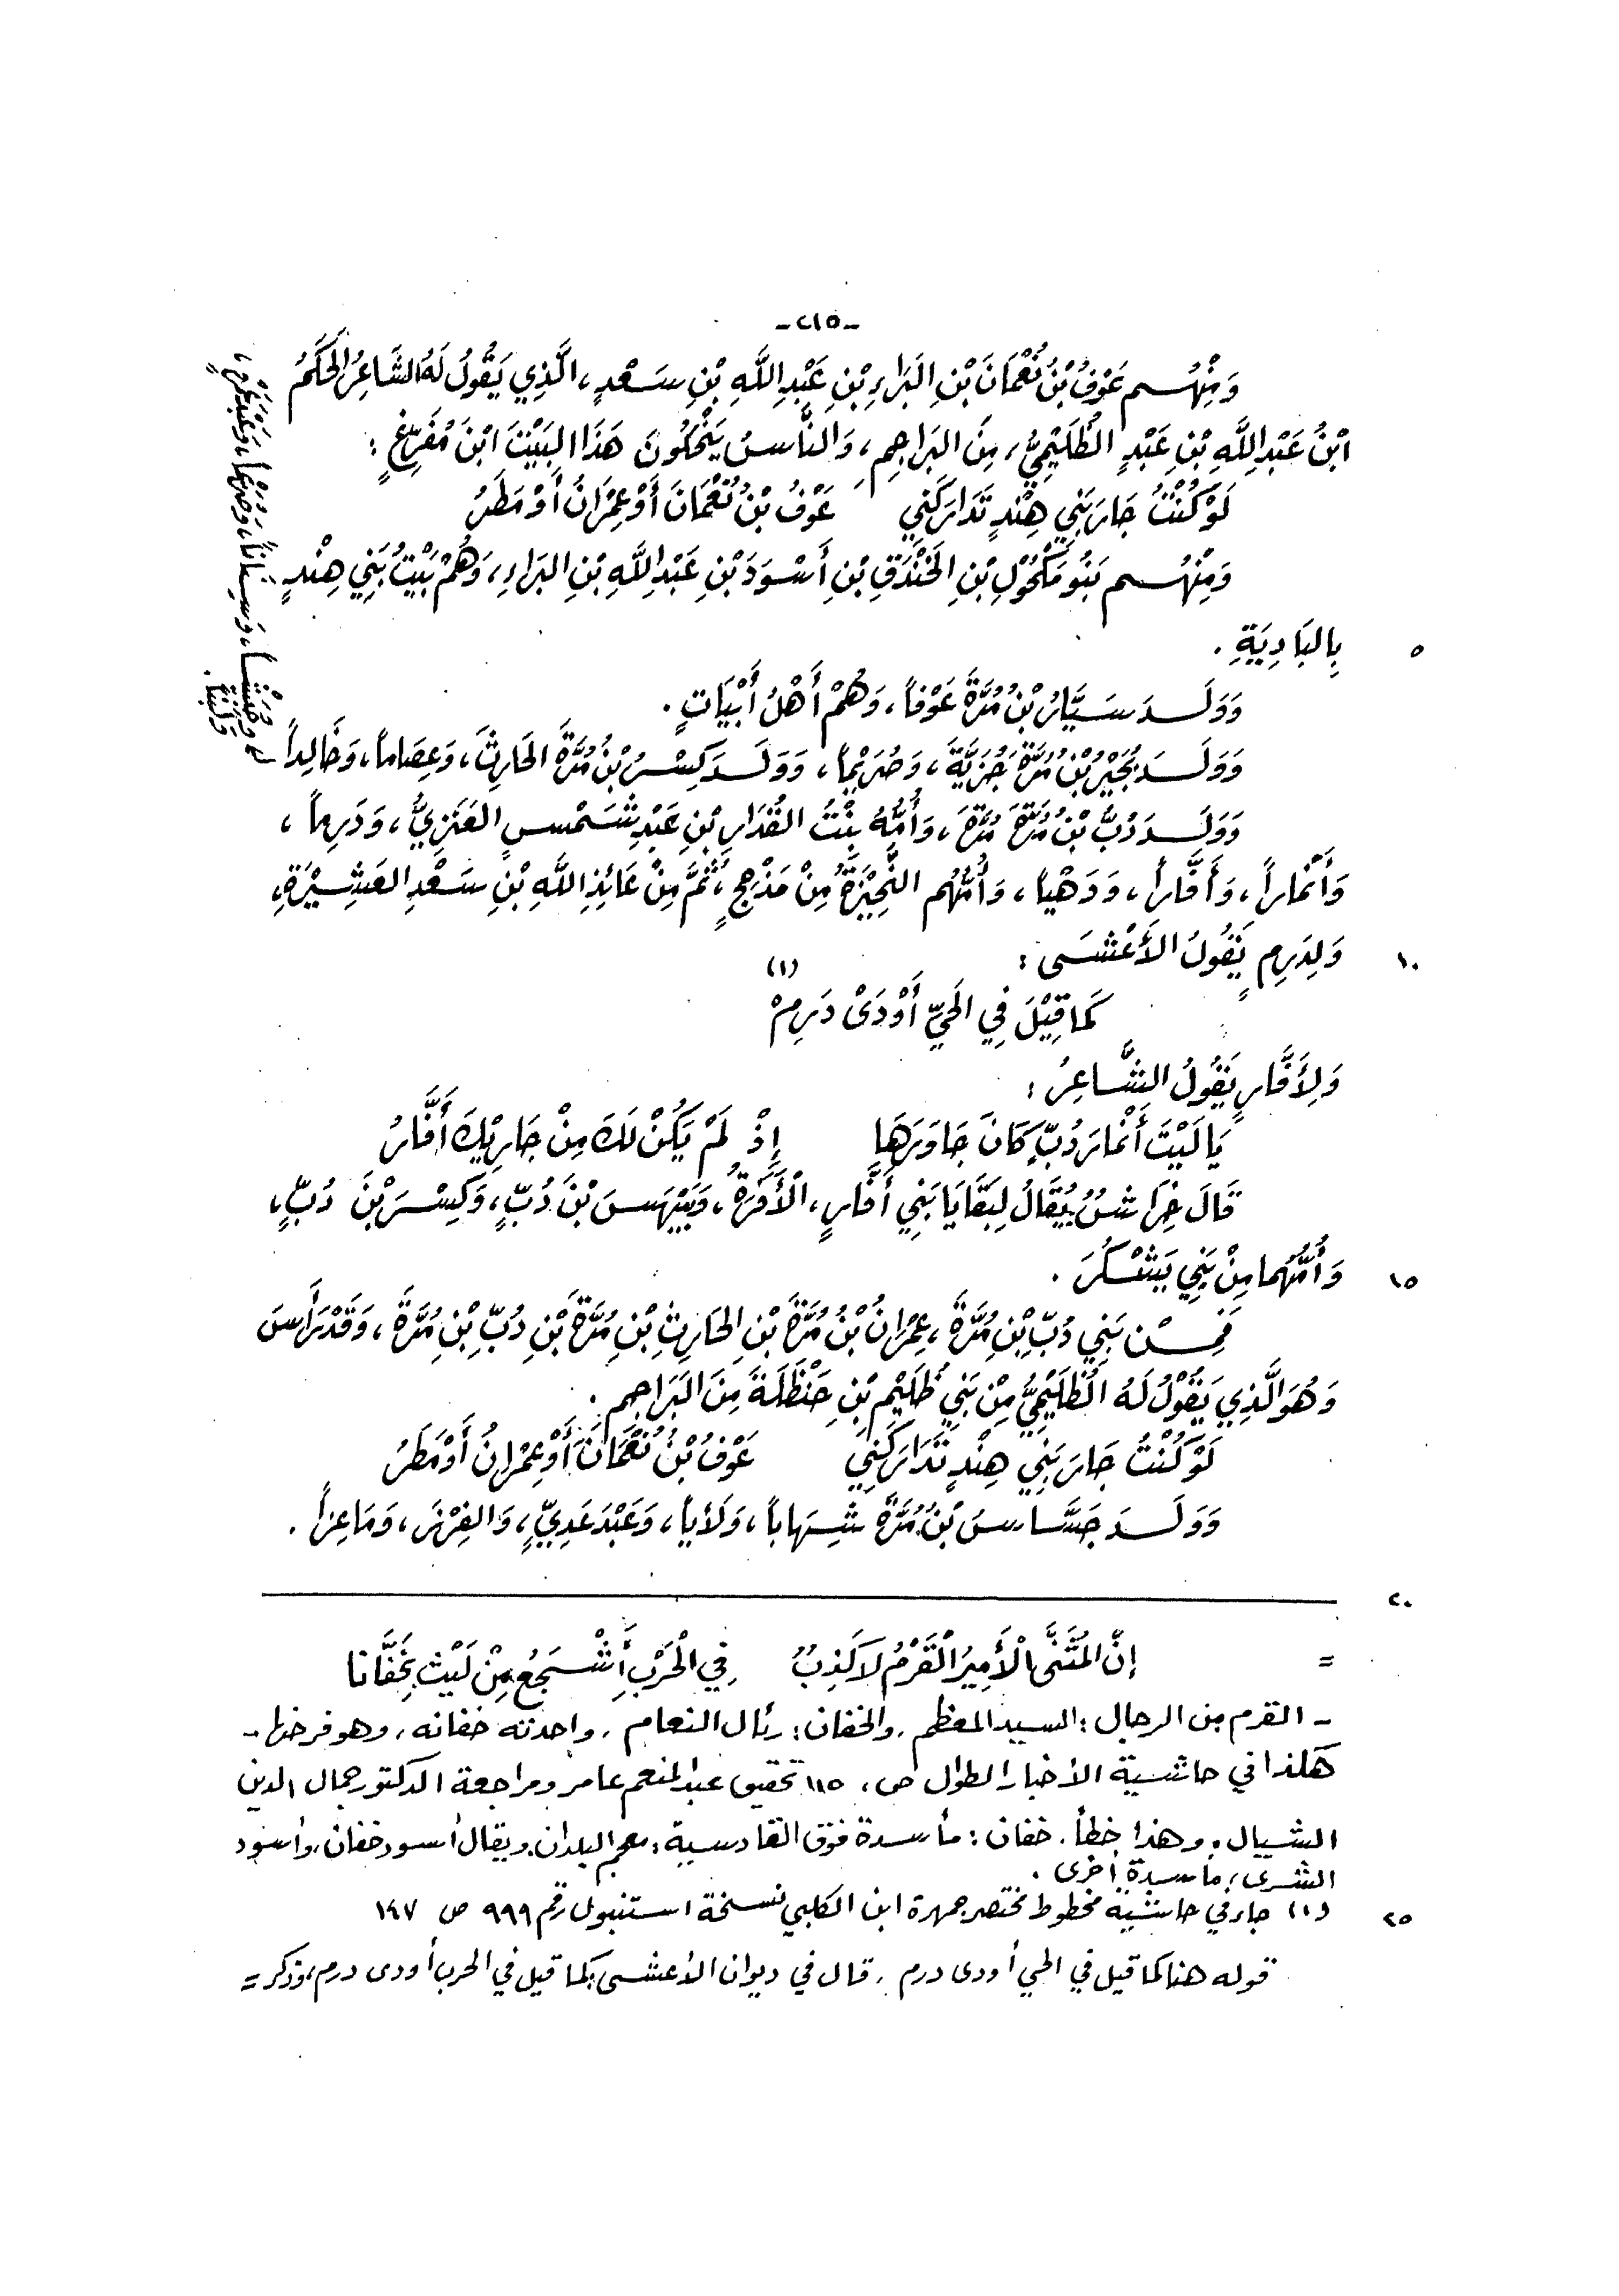 -٢١٥-
وَمِنْهُم عَوْفُ بْنُ نُعْمَانَ بْنِ البَرَاءِ بْنِ عَبْدِ اللَّهِ بْنِ سَعْدٍ، الَّذِي يَقُولُ لَهُ الشَّاعِرُ الحَكَمُ
ابْنُ عَبْدِ اللَّهِ بْنِ عَبْدٍ الظُّلَيْمِيُّ، مِنَ البَرَاجِمِ، وَالنَّاسُ يَنْحَلُونَ هَذَا البَيْتَ ابْنَ مُفَرِّغٍ:
لَوْ كُنْتُ جَارَ بَنِي هِنْدٍ تَدَارَكَنِي عَوْفُ بْنُ نُعْمَانَ أَوْ عِمْرَانُ أَوْ مَطَرُ
وَمِنْهُم بَنُو مَكْحُولِ بْنِ الخَنْدَقِ بْنِ أَسْوَدَ بْنِ عَبْدِ اللَّهِ بْنِ البَرَاءِ، وَهُمْ بَيْتُ بَنِي هِنْدٍ
٥ بِالبَادِيَةِ.
وَوَلَدَ سَيَّارُ بْنُ مُرَّةَ عَوْفاً، وَهُمْ أَهْلُ أَبْيَاتٍ.
وَوَلَدَ بُجَيْرُ بْنُ مُرَّةَ جُزَيَّةَ، وَصُرَيْماً، وَوَلَدَ كِسْرُ بْنُ مُرَّةَ الحَارِثَ، وَعِصَاماً، وَخَالِداً
وَوَلَدَ دُبُّ بْنُ مُرَّةَ مُرَّةَ، وَأُمُّهُ بِنْتُ القُدَارِ بْنِ عَبْدِ شَمْسٍ العَنَزِيُّ، وَدَرِماً،
وَأَنْمَاراً، وَأَفَّاراً، وَدَهْياً، وَأُمُّهُم النَّجِيْزَةُ مِنْ مَذْحِجٍ، ثُمَّ مِنْ عَائِذِ اللَّهِ بْنِ سَعْدِ العَشِيْرَةِ،
١٠ وَلِدَرِمٍ يَقُولُ الأَعْشَى:
كَمَا قِيْلَ فِي الحَيِّ أَوْدَىْ دَرِمْ (١)
وَلِأَفَّارٍ يَقُولُ الشَّاعِرُ:
يَا لَيْتَ أَنْمَارَ دُبٍّ كَانَ جَاوَرَهَا إِذْ لَمْ يَكُنْ لَكَ مِنْ جَارِيْكَ أَفَّارُ
قَالَ خِرَاشٌ يُقَالُ لِبَقَايَا بَنِي أَفَّارٍ، الأَفَرَةُ، وَبَيْهَسَ بْنَ دُبٍّ، وَكِسْرَ بْنَ دُبٍّ،
١٥ وَأُمُّهُمَا مِنْ بَنِي يَشْكُرَ.
فَمِنْ بَنِي دُبِّ بْنِ مُرَّةَ، عِمْرَانُ بْنُ مُرَّةَ بْنِ الحَارِثِ بْنِ مُرَّةَ بْنِ دُبِّ بْنِ مُرَّةَ، وَقَدْ رَأَسَ
وَهُوَ الَّذِي يَقُوْلُ لَهُ الظُّلَيْمِيُّ مِنْ بَنِي ظُلَيْمِ بْنِ حَنْظَلَةَ مِنَ البَرَاجِمِ.
لَوْ كُنْتُ جَارَ بَنِي هِنْدٍ تَدَارَكَنِي عَوْفُ بْنُ نُعْمَانَ أَوْ عِمْرَانُ أَوْ مَطَرُ
وَوَلَدَ جَسَّاسُ بْنُ مُرَّةَ شِهَاباً، وَلَأْياً، وَعَبْدَ عَدِيٍّ، وَالفِزْرَ، وَمَاعِزاً.
٢٠
= إِنَّ المُثَنَّى الأَمِيْرَ القَرْمُ لَا كَذِبُ فِي الْحَرْبِ أَشْجَعُ مِنْ لَيْثٍ بِخَفَّانَا
- القرم من الرجال: السيد المعظم، والخفان: رئال النعام، واحدته خفانه، وهو فرخها -
هكذا في حاشية الأخبار الطوال ص، ١١٥ تحقيق عبد المنعم عامر ومراجعة الدكتور جمال الدين
الشيال. وهذا خطأ. خفان: مأسدة فوق القادسية: معجم البلدان. ويقال أسود خفان، وأسود
الشرى؛ مأسدة أخرى.
٢٥ (١) جاء في حاشية مخطوط مختصر جمهرة ابن الكلبي نسخة استنبول رقم ٩٩٩ ص ١٤٧
قوله هنا كما قيل في الحي أودى درم، قال في ديوان الأعشى: كما قيل في الحرب أودى درم، وذكر =